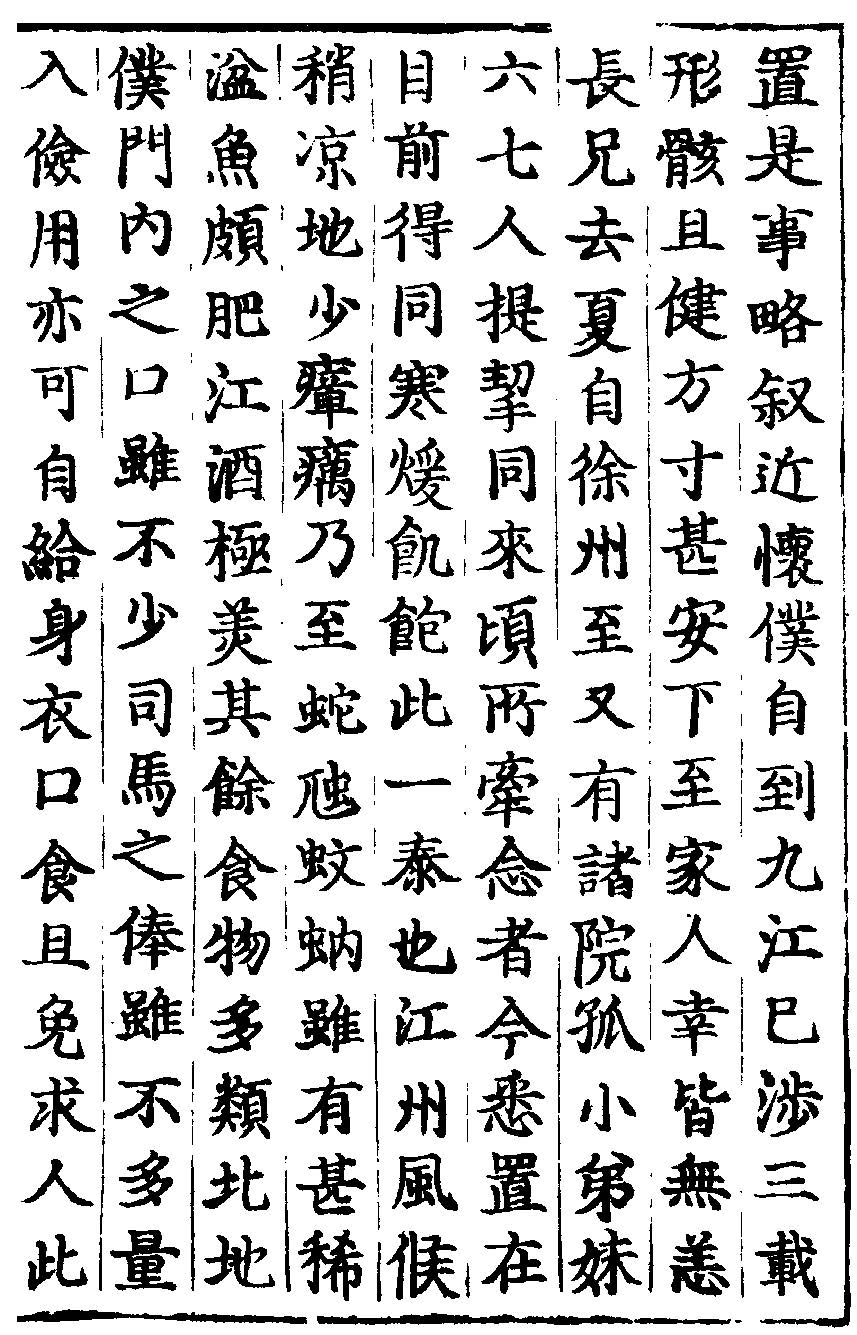 置是事略叙近懷僕自到九江巳涉三載
形骸且健方寸甚安下至家人幸皆無恙
長兄去夏自徐州至又有諸院孤小弟妹
六七人提挈同來頃所牽念者今悉置在
目前得同寒煖飢飽此一泰也江州風候
稍凉地少瘴癘乃至蛇虺蚊蚋雖有甚稀
湓魚頗肥江酒極羙其餘食物多類北地
僕門內之口雖不少司馬之俸雖不多量
入儉用亦可自給身衣口食且免求人此